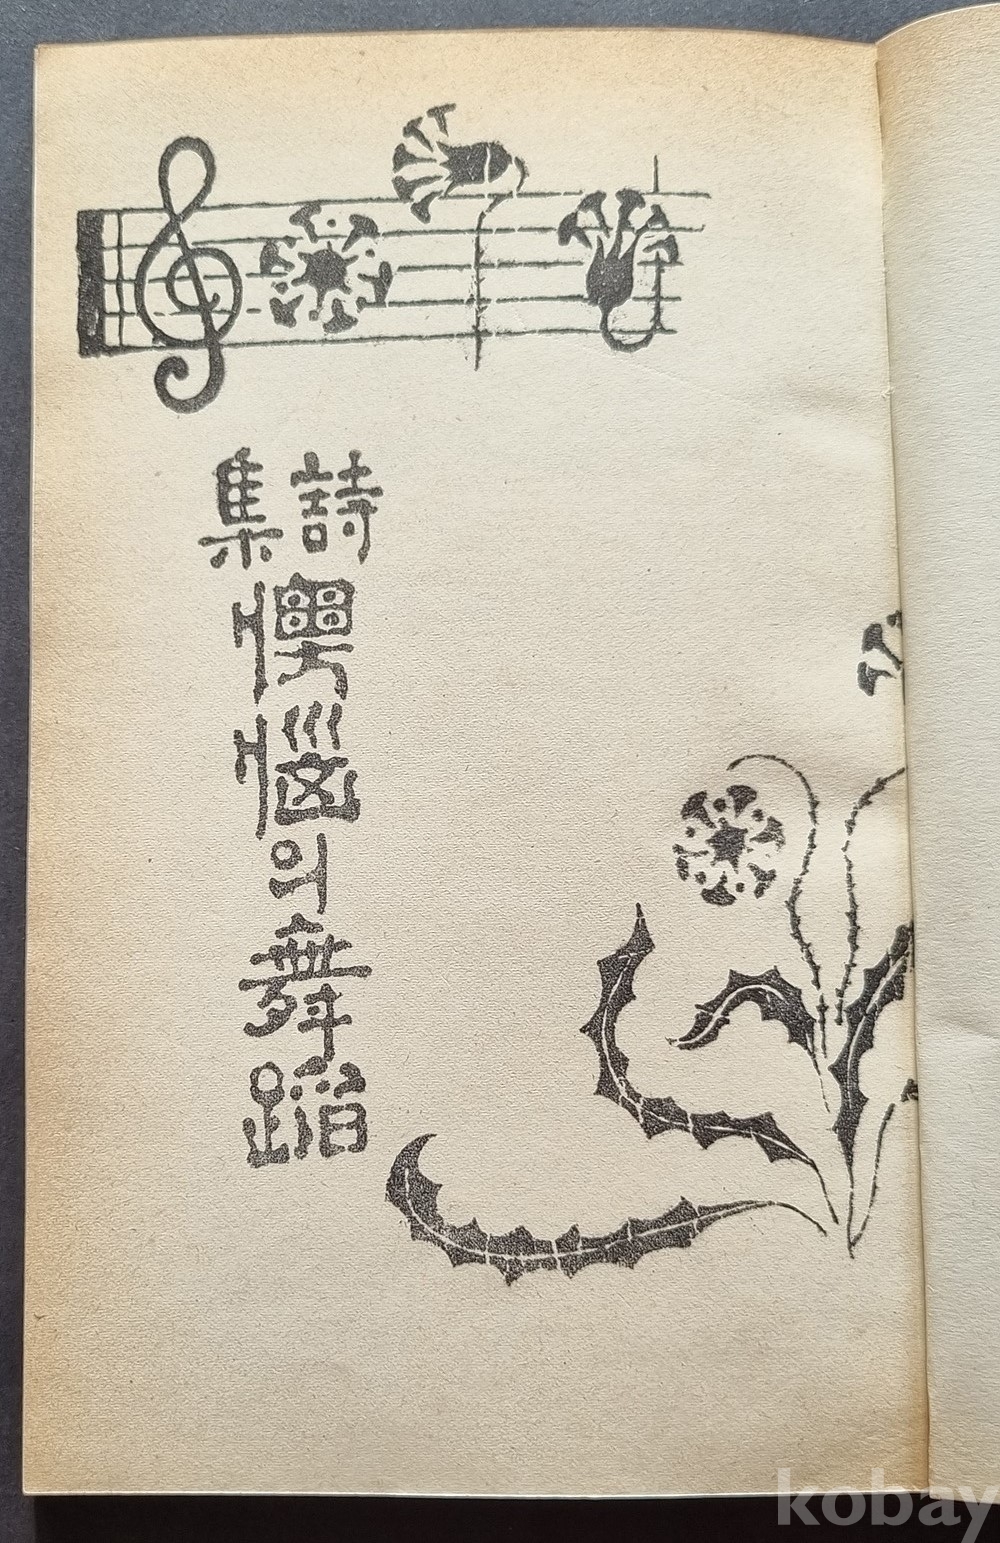 詩集
懊惱의舞蹈
kobay